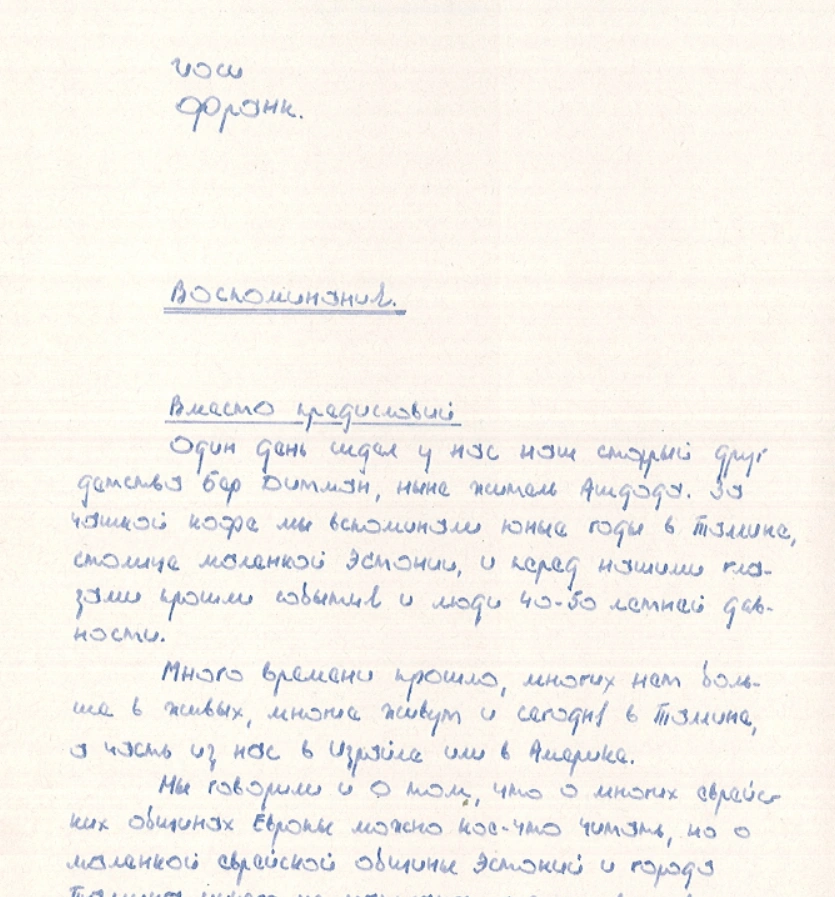 Иоси
Франк.
Воспоминания.
Вместо предисловий
Один день сидел у нас наш старый друг
детства Бер Дитман, ныне житель Ашдода. За
чашкой кофе мы вспоминали юные годы в Таллине,
столице маленкой Эстонии, и перед нашими гла-
зами прошли события и люди 40-50 летней дав-
ности.
Много времени прошло, многих нет боль-
ше в живых, многие живут и сегодня в Таллине,
а часть из нас в Израиле или в Америке.
Мы говорили и о том, что о многих еврейс-
ких общинах Европы можно кое-что читать, но о
маленкой еврейской общине Эстоний и города